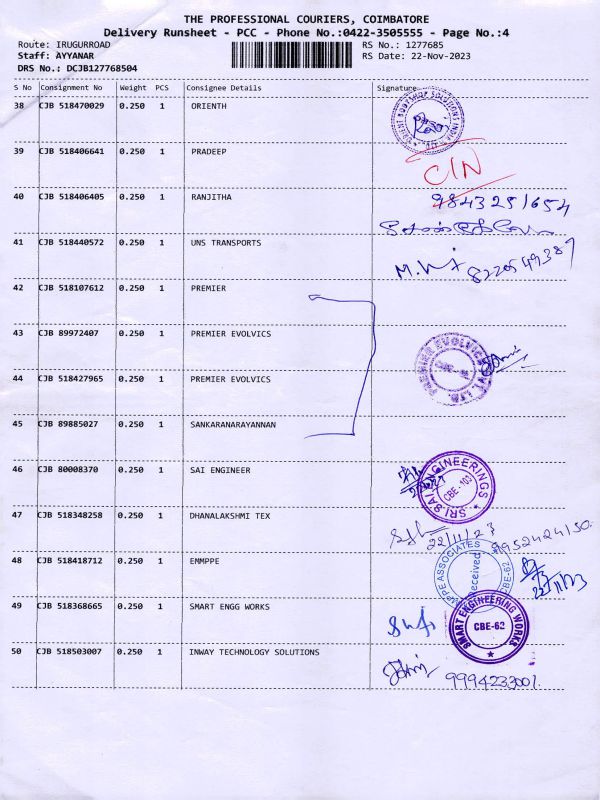 THE PROFESSIONAL COURIERS, COIMBATORE
Delivery Runsheet - PCC - Phone No.:0422-3505555 - Page No.:4
Route: IRUGURROAD RS No.: 1277685
Staff: AYYANAR RS Date: 22-Nov-2023
DRS No.: DCJB127768504
S No Consignment No Weight PCS Consignee Details Signature
38 CJB 518470029 0.250 1 ORIENTH
39 CJB 518406641 0.250 1 PRADEEP C/N
40 CJB 518406405 0.250 1 RANJITHA 9843251654
41 CJB 518440572 0.250 1 UNS TRANSPORTS 8220549387
42 CJB 518107612 0.250 1 PREMIER
43 CJB 89972407 0.250 1 PREMIER EVOLVICS
PREMIER EVOLVICS PVT. LTD.
44 CJB 518427965 0.250 1 PREMIER EVOLVICS
45 CJB 89885027 0.250 1 SANKARANARAYANNAN
46 CJB 80008370 0.250 1 SAI ENGINEER
SRI SAI ENGINEERINGS
CBE-103
47 CJB 518348258 0.250 1 DHANALAKSHMI TEX 22/11/23 9952424150
48 CJB 518418712 0.250 1 EMMPPE
ASSOCIATES
Received
CBE-62
22/11/23
49 CJB 518368665 0.250 1 SMART ENGG WORKS
SMART ENGINEERING WORKS
CBE-62
50 CJB 518503007 0.250 1 INWAY TECHNOLOGY SOLUTIONS
9994233001